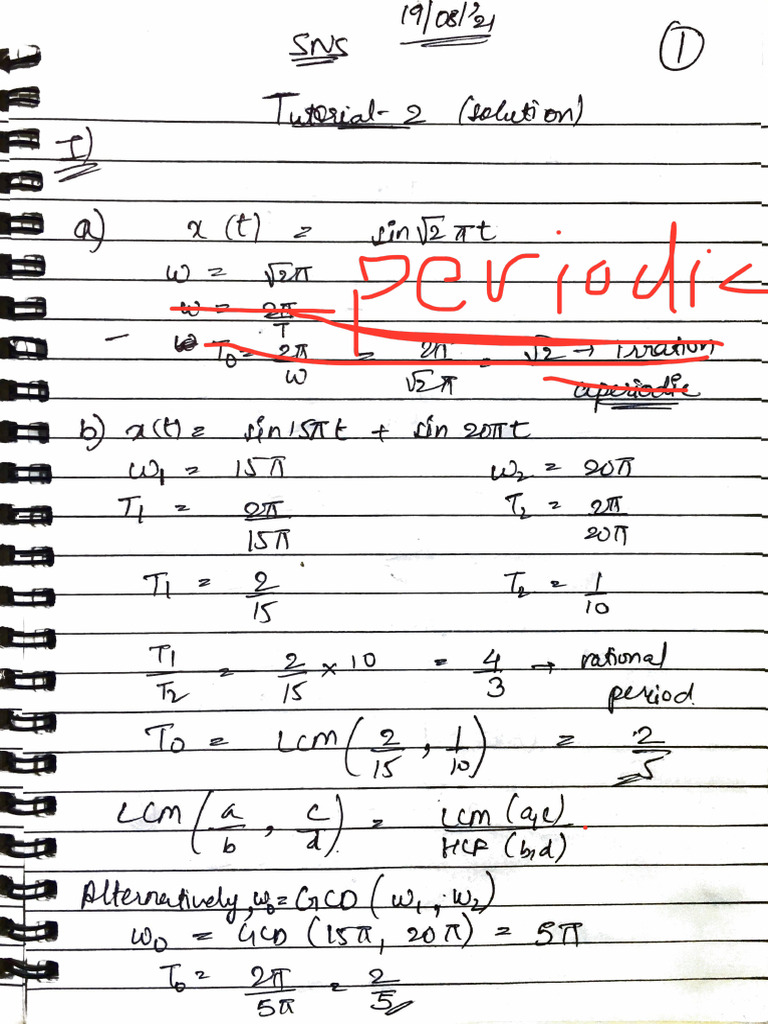 19/08/'21
SNS
①
Tutorial - 2 (solution)
I)
a) x(t) = sin √2 πt
ω = √2π
periodic
ω = 2π/T
T₀ = 2π/ω = 2π/√2π = √2 → irration
aperiodic
b) x(t) = sin 15πt + sin 20πt
ω₁ = 15π ω₂ = 20π
T₁ = 2π/15π T₂ = 2π/20π
T₁ = 2/15 T₂ = 1/10
T₁/T₂ = 2/15 × 10 = 4/3 → rational
period
T₀ = LCM(2/15, 1/10) = 2/5
LCM(a/b, c/d) = LCM(a,c)/HCF(b,d)
Alternatively, ω₀ = GCD(ω₁, ω₂)
ω₀ = GCD(15π, 20π) = 5π
T₀ = 2π/5π = 2/5